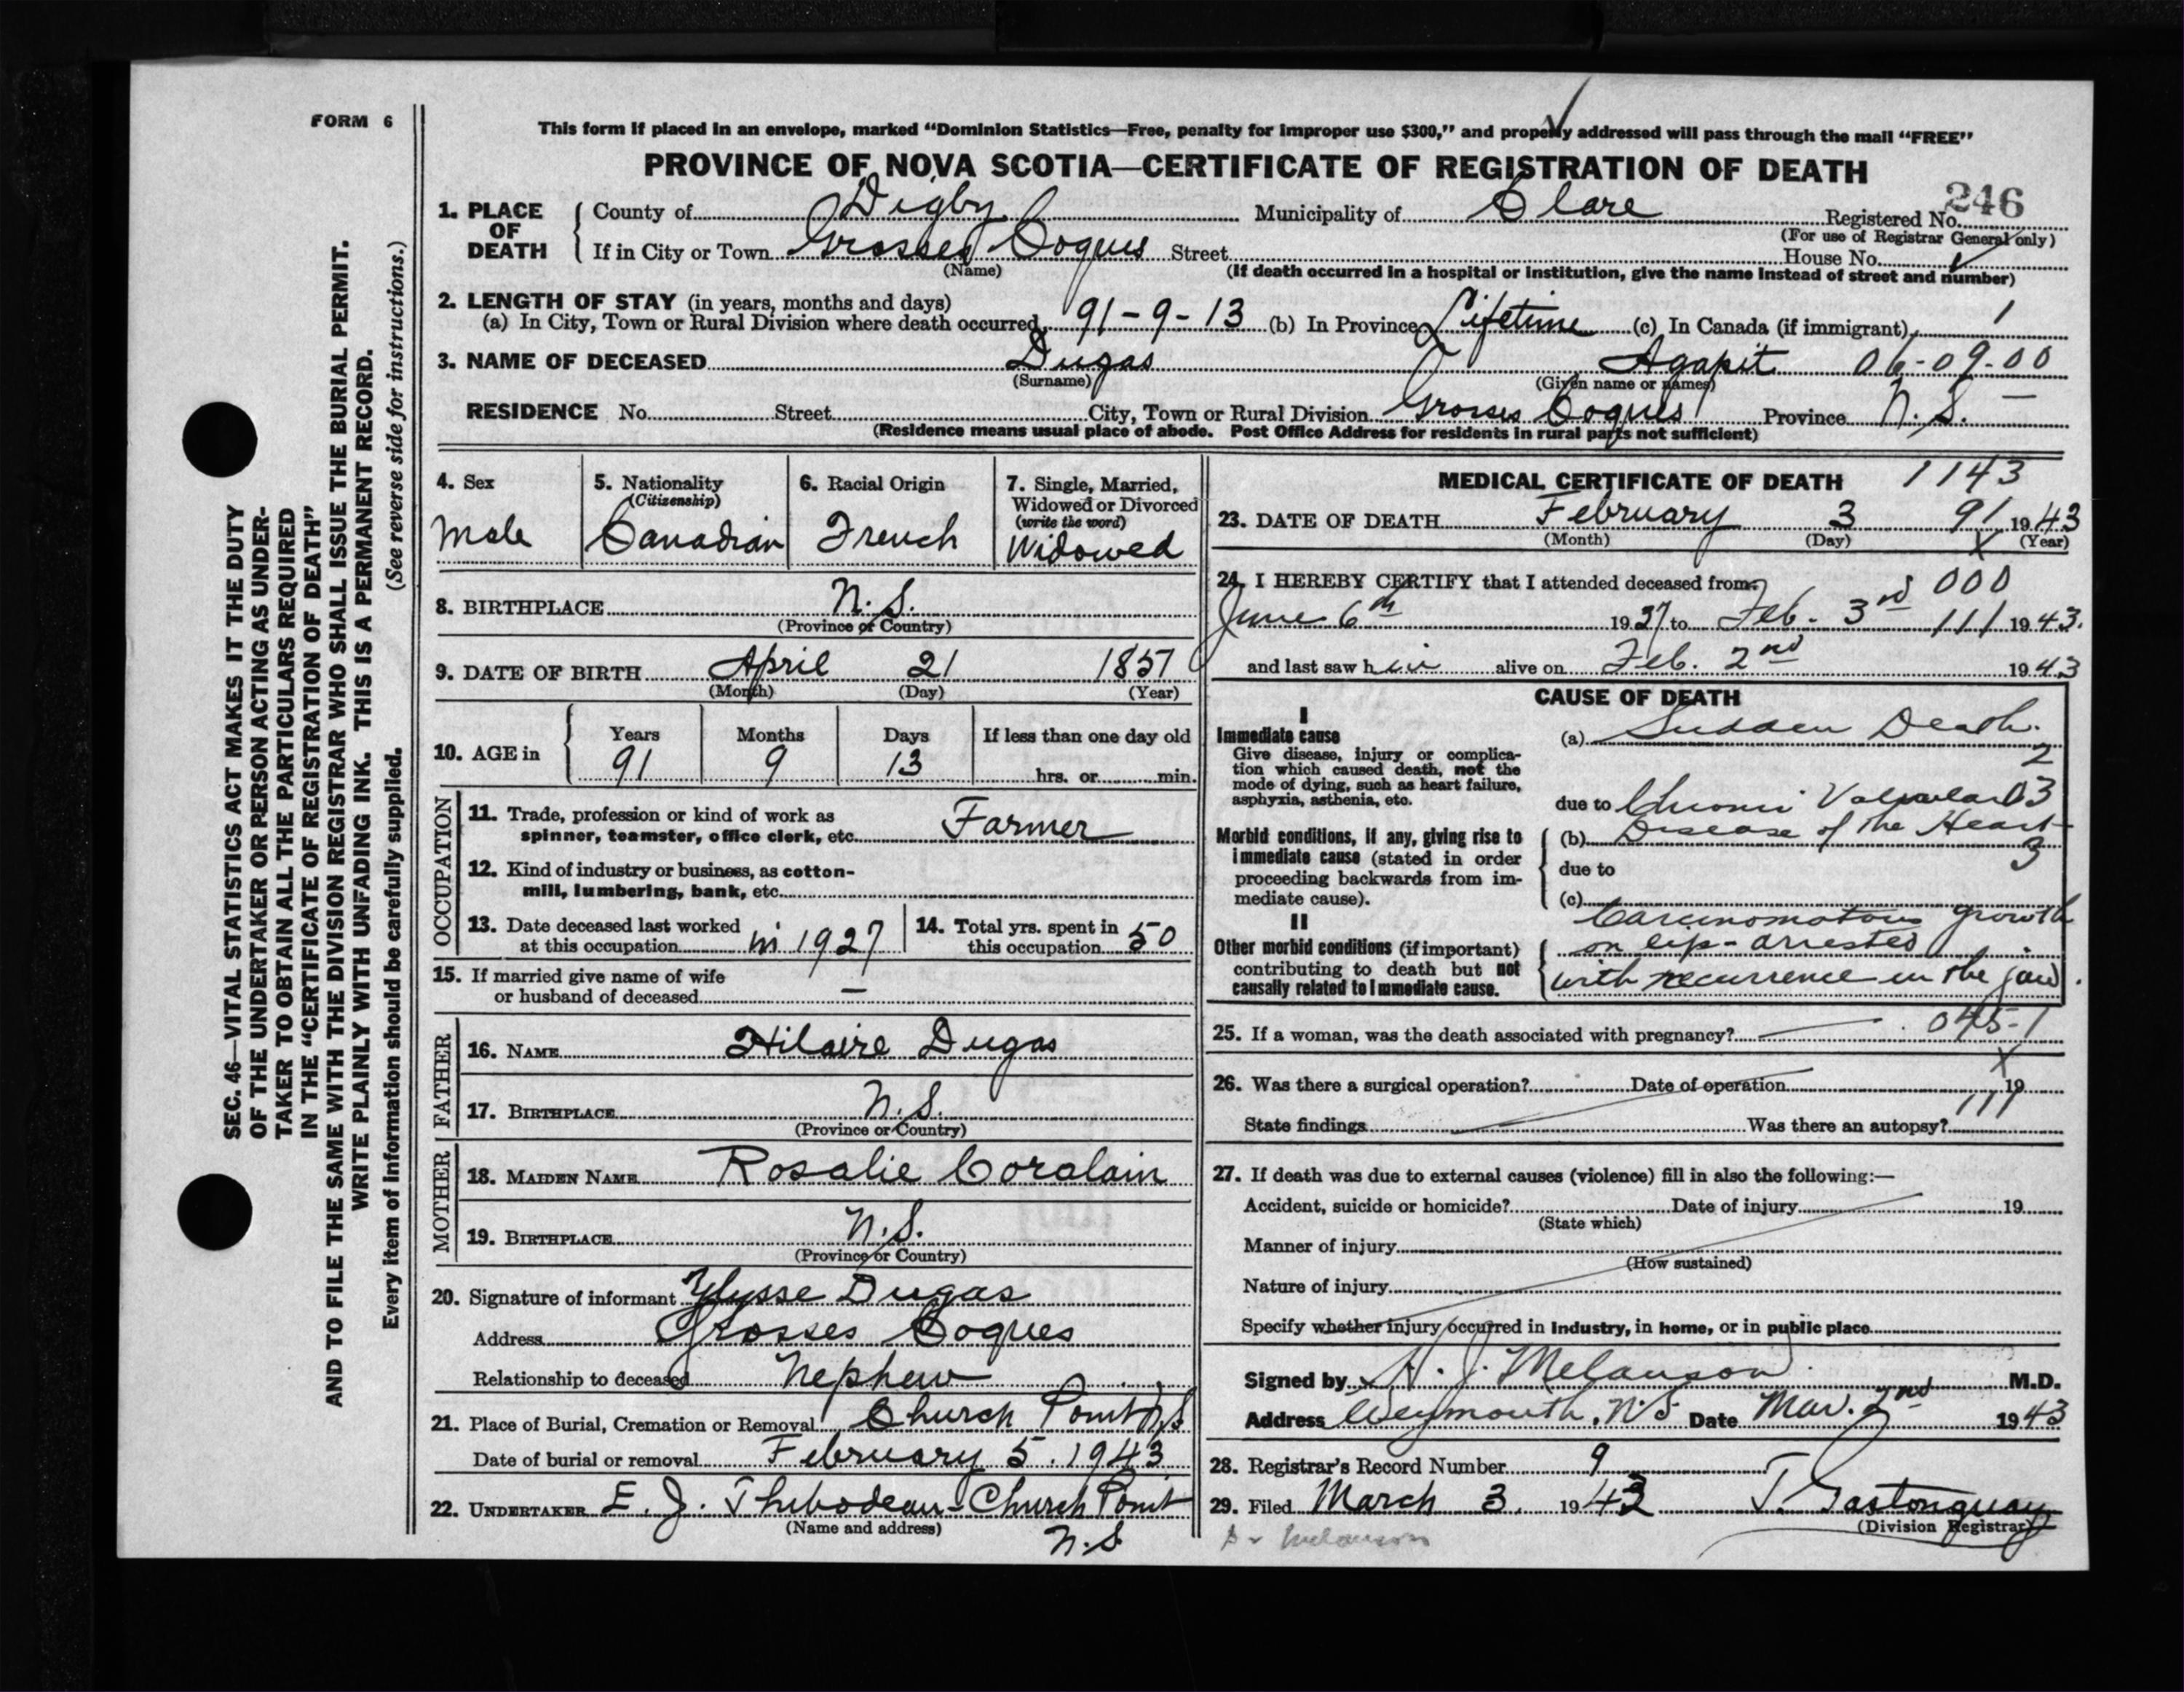 FORM 6
This form if placed in an envelope, marked "Dominion Statistics—Free, penalty for improper use $300," and properly addressed will pass through the mail "FREE"
PROVINCE OF NOVA SCOTIA—CERTIFICATE OF REGISTRATION OF DEATH
246
1. PLACE OF DEATH { County of Digby Municipality of Clare Registered No.
(For use of Registrar General only)
If in City or Town Grosses Coques Street House No.
(Name) (If death occurred in a hospital or institution, give the name instead of street and number)
2. LENGTH OF STAY (in years, months and days)
(a) In City, Town or Rural Division where death occurred 91-9-13 (b) In Province Lifetime (c) In Canada (if immigrant) 1
3. NAME OF DECEASED Dugas Agapit 06-09-00
(Surname) (Given name or names)
RESIDENCE No. Street City, Town or Rural Division Grosses Coques Province N.S. —
(Residence means usual place of abode. Post Office Address for residents in rural parts not sufficient)
4. Sex 5. Nationality (Citizenship) 6. Racial Origin 7. Single, Married, Widowed or Divorced (write the word)
Male Canadian French Widowed
8. BIRTHPLACE N.S.
(Province or Country)
9. DATE OF BIRTH April 21 1851
(Month) (Day) (Year)
10. AGE in { Years Months Days If less than one day old
91 9 13 hrs. or min.
OCCUPATION
11. Trade, profession or kind of work as
spinner, teamster, office clerk, etc. Farmer
12. Kind of industry or business, as cotton-
mill, lumbering, bank, etc.
13. Date deceased last worked
at this occupation in 1927
14. Total yrs. spent in
this occupation 50
15. If married give name of wife
or husband of deceased —
FATHER
16. NAME Hilaire Dugas
17. BIRTHPLACE N.S.
(Province or Country)
MOTHER
18. MAIDEN NAME Rosalie Coralain
19. BIRTHPLACE N.S.
(Province or Country)
20. Signature of informant Ylysse Dugas
Address Grosses Coques
Relationship to deceased Nephew
21. Place of Burial, Cremation or Removal Church Point N.S.
Date of burial or removal February 5. 1943
22. UNDERTAKER E. J. Thibodeau - Church Point
(Name and address) N.S.
MEDICAL CERTIFICATE OF DEATH 1143
23. DATE OF DEATH February 3 91 1943
(Month) (Day) X (Year)
24. I HEREBY CERTIFY that I attended deceased from: 000
June 6th 1927 to Feb. 3rd 111 1943.
and last saw him alive on Feb. 2nd 1943
CAUSE OF DEATH
I
Immediate cause
Give disease, injury or complica-
tion which caused death, not the
mode of dying, such as heart failure,
asphyxia, asthenia, etc.
(a) Sudden Death.
2
due to Chronic Valvular 03
Morbid conditions, if any, giving rise to
immediate cause (stated in order
proceeding backwards from im-
mediate cause).
(b) Disease of the Heart
3
due to
(c)
II
Other morbid conditions (if important)
contributing to death but not
causally related to immediate cause.
Carcinomatous growth
on lip - arrested
with recurrence in the jaw.
25. If a woman, was the death associated with pregnancy? 045-1
X
26. Was there a surgical operation? Date of operation 19
111
State findings Was there an autopsy?
27. If death was due to external causes (violence) fill in also the following:—
Accident, suicide or homicide? Date of injury 19
(State which)
Manner of injury
(How sustained)
Nature of injury
Specify whether injury occurred in industry, in home, or in public place
Signed by H. J. Melanson M.D.
Address Weymouth, N.S Date Mar. 2nd 1943
28. Registrar's Record Number 9
29. Filed March 3, 1943 J. Gastonguay
(Division Registrar)
Dr Melanson
SEC. 46—VITAL STATISTICS ACT MAKES IT THE DUTY
OF THE UNDERTAKER OR PERSON ACTING AS UNDER-
TAKER TO OBTAIN ALL THE PARTICULARS REQUIRED
IN THE "CERTIFICATE OF REGISTRATION OF DEATH"
AND TO FILE THE SAME WITH THE DIVISION REGISTRAR WHO SHALL ISSUE THE BURIAL PERMIT.
WRITE PLAINLY WITH UNFADING INK. THIS IS A PERMANENT RECORD.
Every item of information should be carefully supplied. (See reverse side for instructions.)